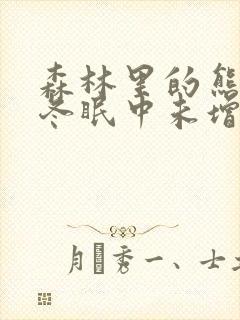 森林里的熊
冬眠中未增
月 秀一、士